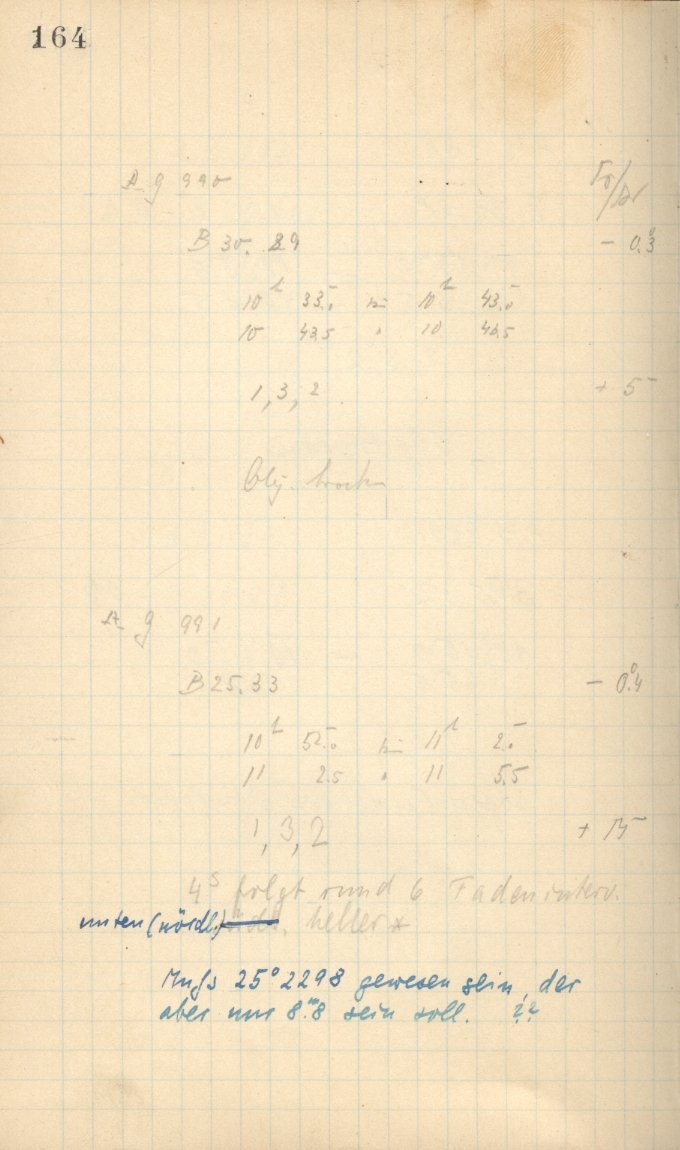 164
A g 990
B 30. 29 - 0.°3
10 h 33.0 bis 10 h 43.0
10 43.5 " 10 46.5
1, 3, 2 + 5
Obj. trocken
A g 991
B 25.33 - 0.°4
10 h 52.0 bis 11 h 2.0
11 2.5 " 11 5.5
1, 3, 2 + 15
4 s folgt rund 6 Fadeninterv.
unten (nördl.) heller *
Muß 25° 2298 gewesen sein, der
aber nur 8.m8 sein soll. ??